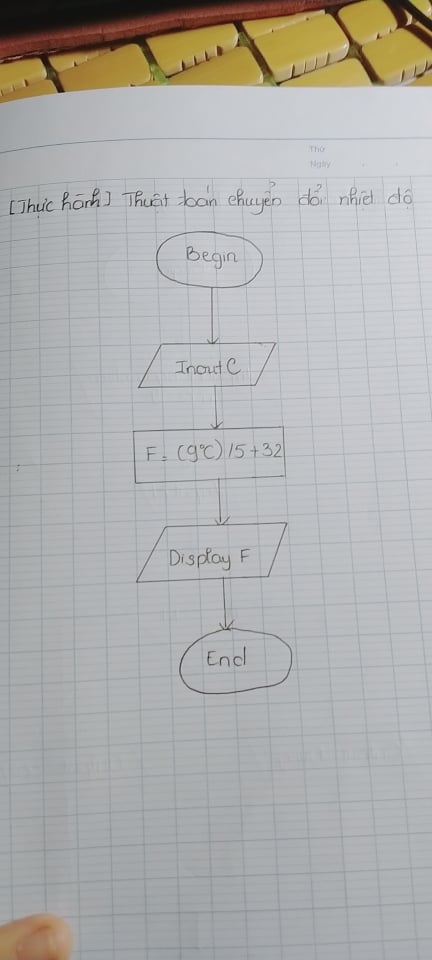 Thứ
Ngày
[Thực hành] Thuật toán chuyển đổi nhiệt độ
Begin
Inout C
F = (9°C) / 5 + 32
Display F
End